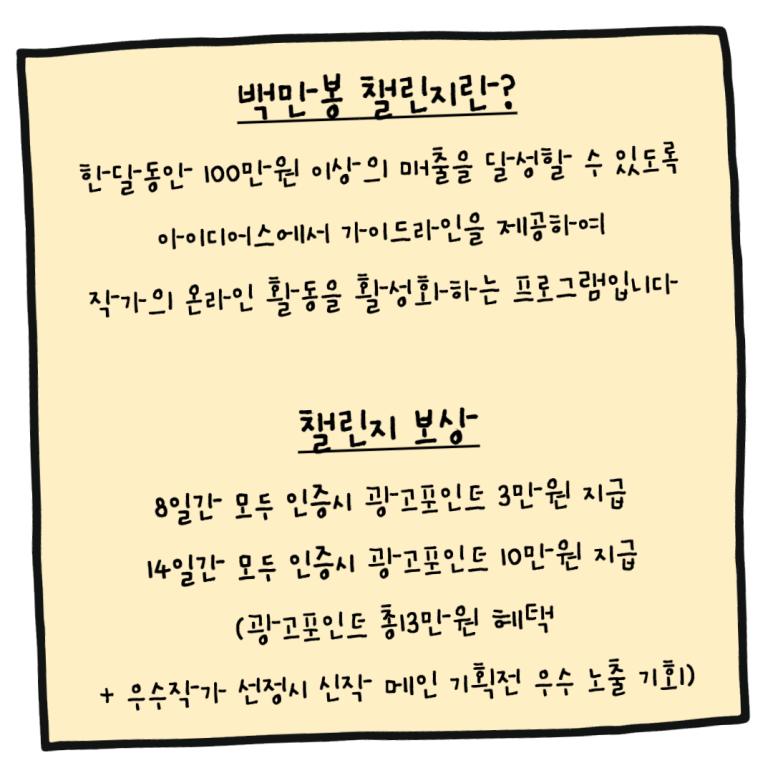 백만봉 챌린지란?
한달동안 100만원 이상의 매출을 달성할 수 있도록
아이디어스에서 가이드라인을 제공하여
작가의 온라인 활동을 활성화하는 프로그램입니다
챌린지 보상
8일간 모두 인증시 광고포인트 3만원 지급
14일간 모두 인증시 광고포인트 10만원 지급
(광고포인트 총13만원 혜택
+ 우수작가 선정시 신작 메인 기획전 우수 노출 기회)